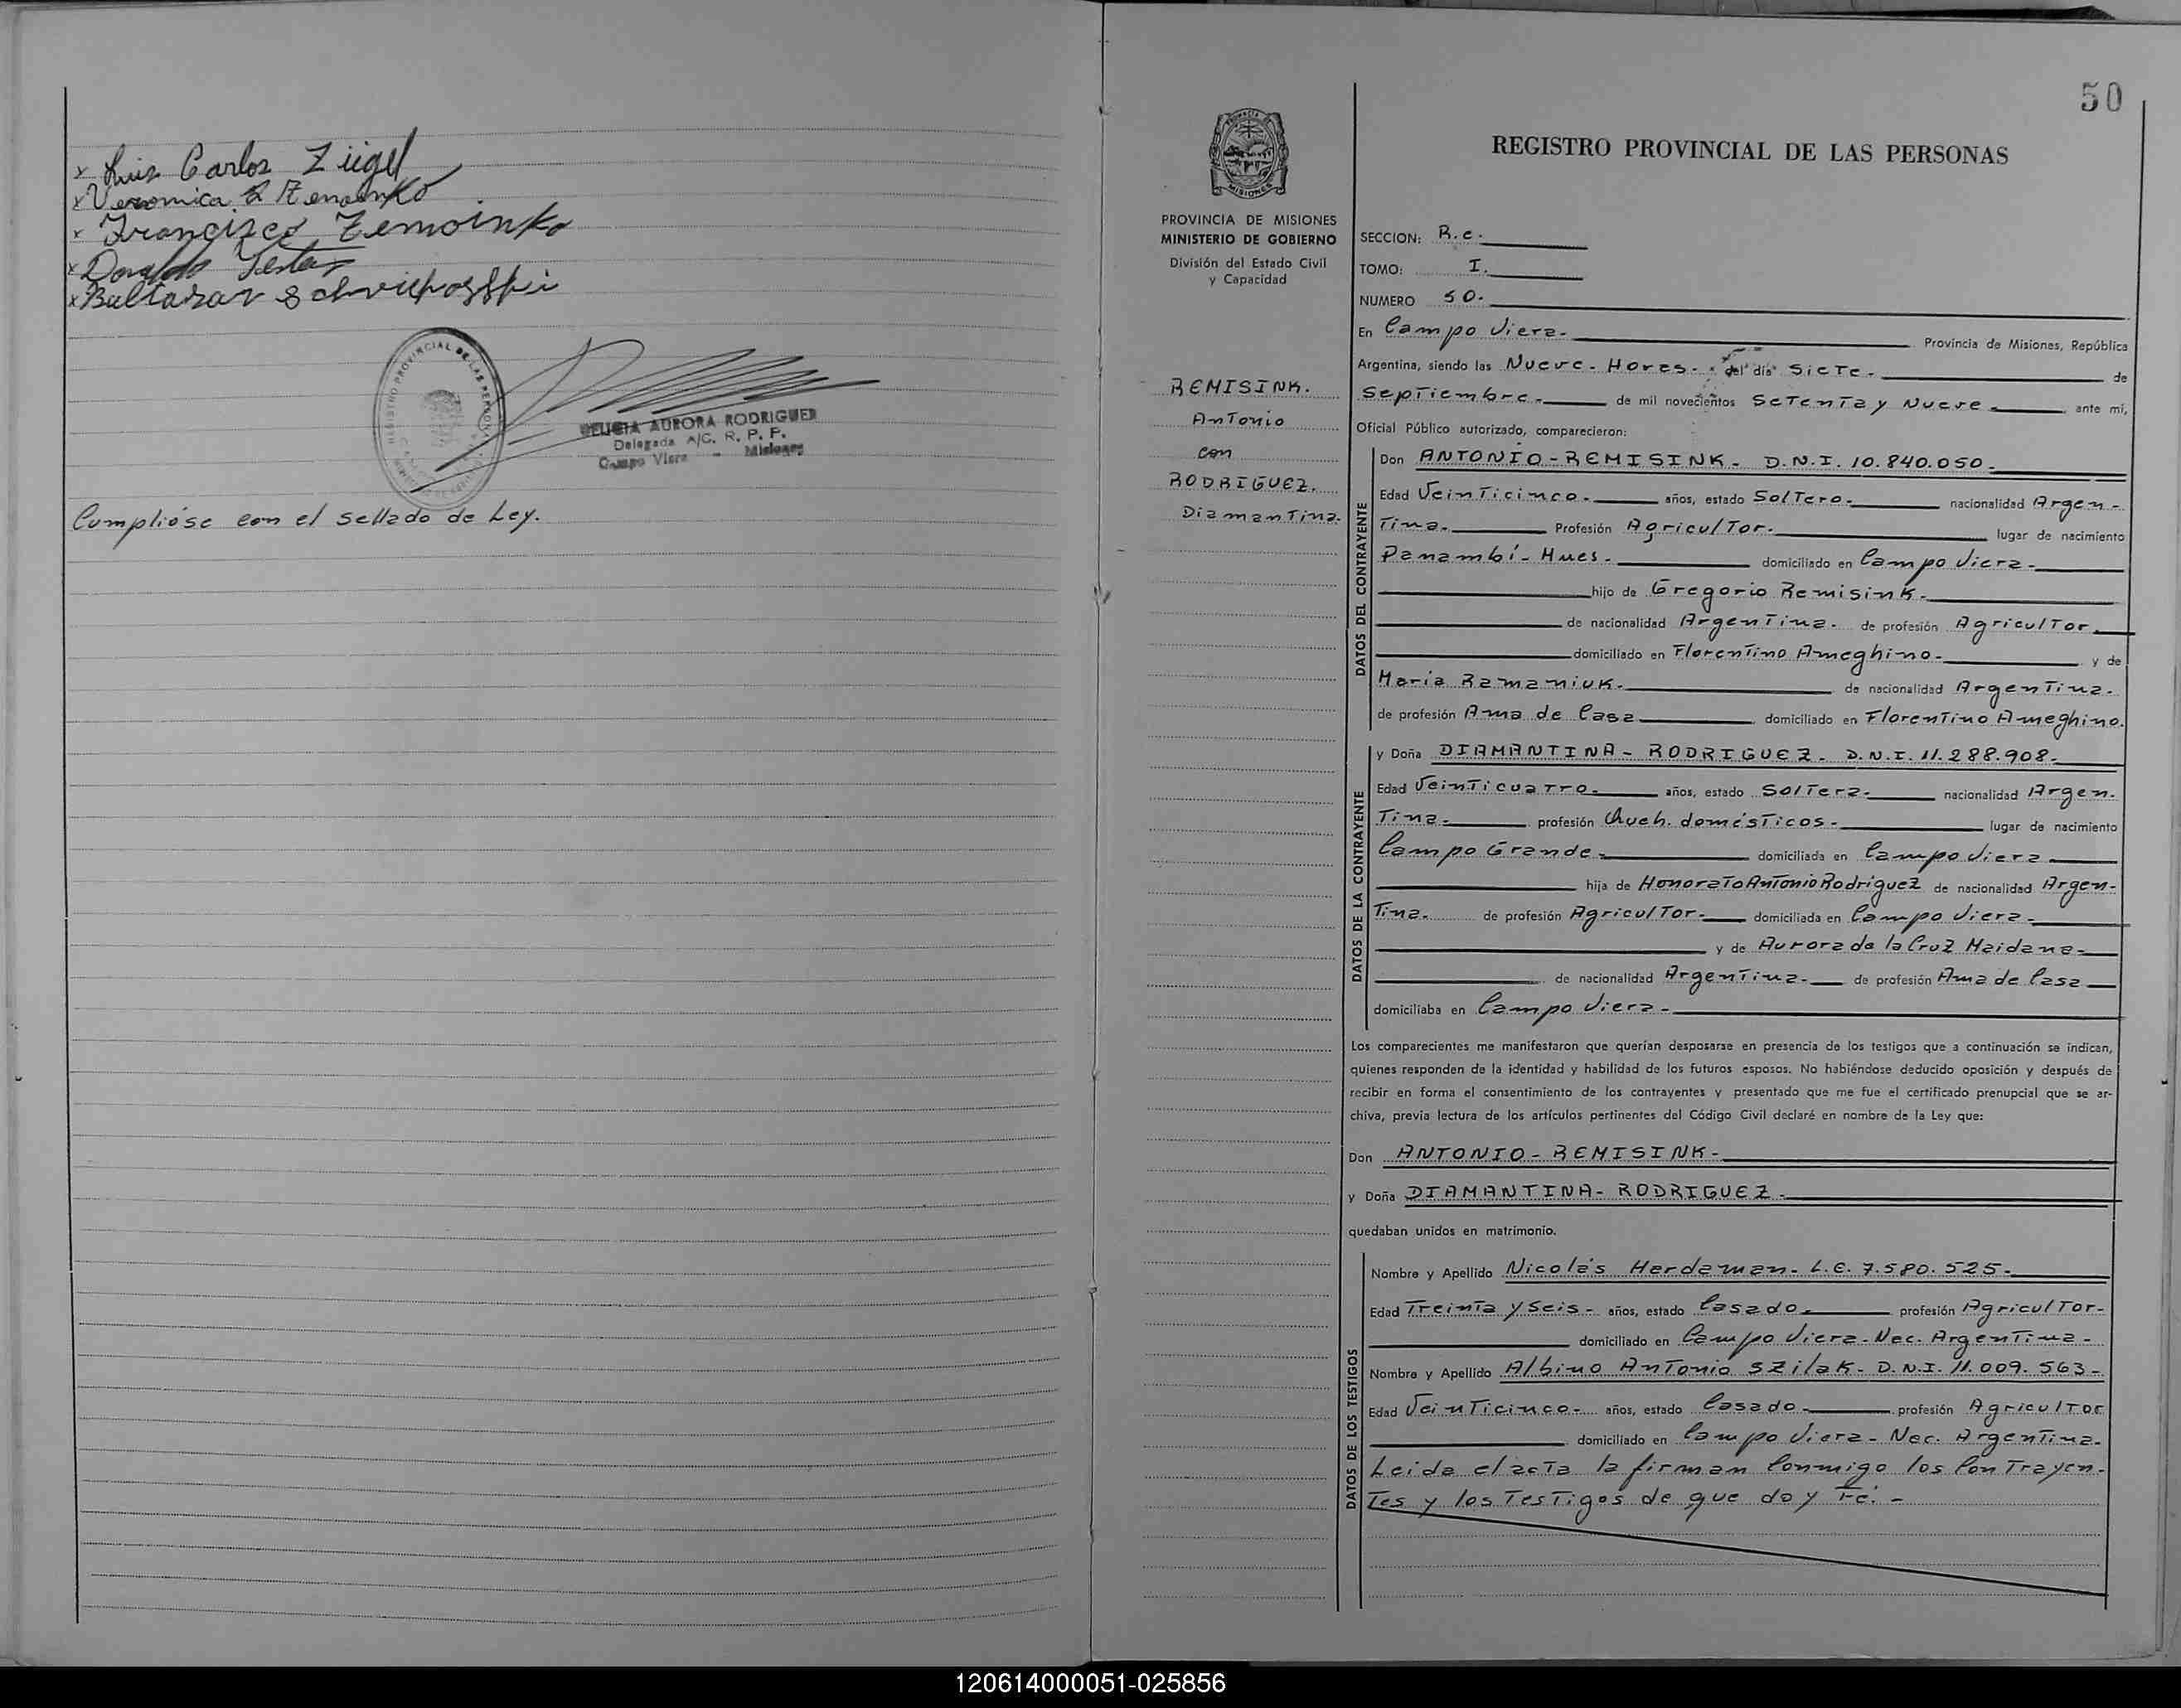 x Luis Carlos Zügel
x Veronica Zemoinko
x Francisco Zemoinko
x
x Baltasar
REGISTRO PROVINCIAL DE LAS PERSONAS
DELICIA AURORA RODRIGUEZ
Delegada A/C. R. P. P.
Campo Viera - Misiones
Cumplióse con el sellado de Ley.
50
REGISTRO PROVINCIAL DE LAS PERSONAS
PROVINCIA DE MISIONES
MINISTERIO DE GOBIERNO
División del Estado Civil
y Capacidad
REMISINK.
Antonio
con
RODRIGUEZ.
Diamantina.
SECCION: R.c.
TOMO: I.
NUMERO 50.
En Campo Viera- Provincia de Misiones, República
Argentina, siendo las Nueve- Horas- del día Siete- de
Septiembre- de mil novecientos Setenta y Nueve- ante mí,
Oficial Público autorizado, comparecieron:
DATOS DEL CONTRAYENTE
Don ANTONIO-REMISINK- D.N.I. 10.840.050-
Edad Veinticinco- años, estado Soltero- nacionalidad Argen-
tina- Profesión Agricultor- lugar de nacimiento
Panambí- Mnes- domiciliado en Campo Viera-
hijo de Gregorio Remisink-
de nacionalidad Argentina- de profesión Agricultor-
domiciliado en Florentino Ameghino- y de
María Ramaniuk- de nacionalidad Argentina-
de profesión Ama de Casa domiciliado en Florentino Ameghino.
DATOS DE LA CONTRAYENTE
y Doña DIAMANTINA- RODRIGUEZ- D.N.I. 11.288.908-
Edad Veinticuatro- años, estado Soltera- nacionalidad Argen-
tina- profesión Queh. domésticos- lugar de nacimiento
Campo Grande- domiciliada en Campo Viera
hija de Honorato Antonio Rodriguez de nacionalidad Argen-
tina- de profesión Agricultor- domiciliada en Campo Viera-
y de Aurora de la Cruz Maidana-
de nacionalidad Argentina- de profesión Ama de Casa
domiciliaba en Campo Viera-
Los comparecientes me manifestaron que querían desposarse en presencia de los testigos que a continuación se indican,
quienes responden de la identidad y habilidad de los futuros esposos. No habiéndose deducido oposición y después de
recibir en forma el consentimiento de los contrayentes y presentado que me fue el certificado prenupcial que se ar-
chiva, previa lectura de los artículos pertinentes del Código Civil declaré en nombre de la Ley que:
Don ANTONIO- REMISINK-
y Doña DIAMANTINA- RODRIGUEZ-
quedaban unidos en matrimonio.
DATOS DE LOS TESTIGOS
Nombre y Apellido Nicolás Herdaman- L.E. 7.580.525-
Edad Treinta y Seis- años, estado Casado- profesión Agricultor-
domiciliado en Campo Viera- Nac. Argentina-
Nombre y Apellido Albino Antonio Szilak- D.N.I. 11.009.563-
Edad Veinticinco- años, estado Casado- profesión Agricultor
domiciliado en Campo Viera- Nac. Argentina-
Leída el acta la firman Conmigo los Contrayen-
tes y los Testigos de que doy Fé.-
120614000051-025856